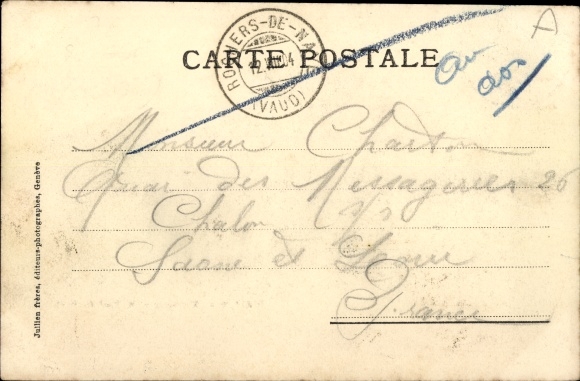 CARTE POSTALE
ROCHERS-DE-NAYE
12.VII.04
(VAUD)
A
au
dos
Monsieur Charton
Quai des Messageries 26
Chalon s/s
Saone et Loire
France
Jullien frères, éditeurs-photographes, Genève